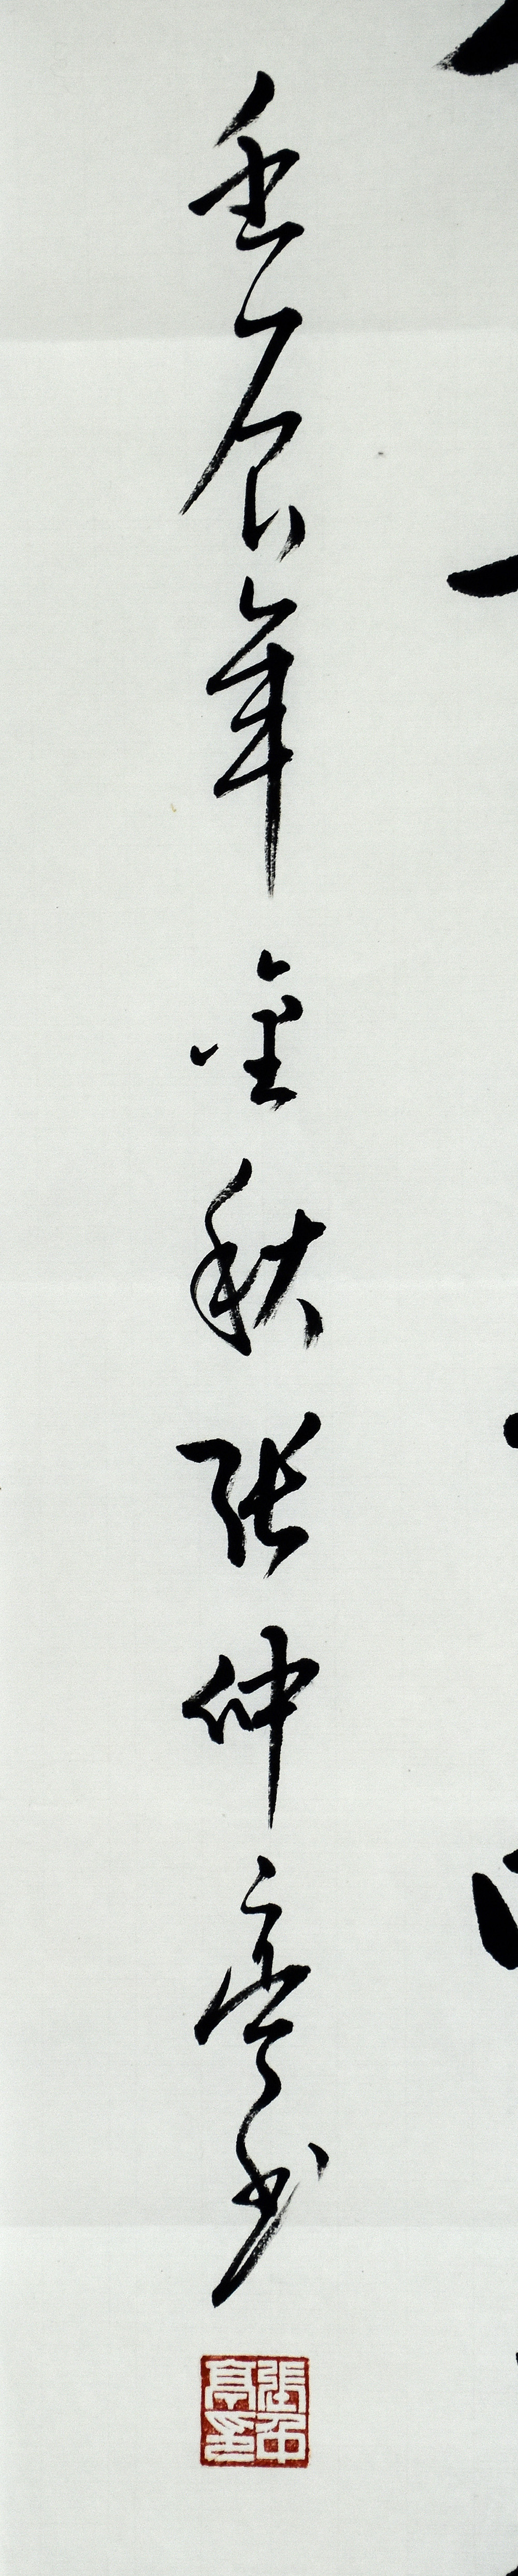 壬辰年金秋张仲亭书
張仲亭印